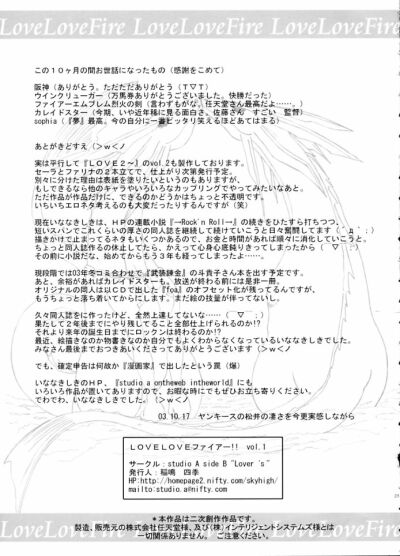 LoveLoveFire LoveLoveFire LoveLoveFire
この１０ヶ月の間お世話になったもの（感謝をこめて）
阪神（ありがとう。ただただありがとう（T▽T）
ウインクリューガー（万馬券ありがとうございました。快勝だった）
ファイアーエムブレム烈火の剣（言わずもがな。任天堂さん最高だよ……。）
カレイドスター（今期、いや近年稀に見る面白さ。佐藤さん　すごい　監督）
sophia（『夢』最高。今の自分に一番ピッタリ笑えるほどあてはまる）
あとがきどすえ（＞ｗ＜ノ
実は平行して『ＬＯＶＥ２〜』のvol.2も製作しております。
セーラとファリナの２本立てで、仕上がり次第発行予定。
別々に分けた理由は表紙を塗りたいというのもありますが、
もしできるなら他のキャラやいろいろなカップリングでやってみたいなあと。
ただ作品が作品だけに、できるのかどうかはちょっと不透明です。
いちいちエロネタ考えるのも大変だったりするんですが（笑）
現在いななきしきは、ＨＰの連載小説『→Rock'n Roll→』の続きをひたすら打ちつつ、
短いスパンでこれくらいの厚さの同人誌を継続して続けていこうと日々奮闘してます（´д｀；）
描きかけで止まってるネタもいくつかあるので、お金と時間があれば順々に消化していこうと。
ちょっと同人誌作るの休止してたら、かえって心身心底鈍りきってしまったから（　￣▽￣；）
その前に小説だな、始めてからもう３年も経ってしまったよ……。
現段階では03年冬コミ合わせで『武装錬金』の斗貴子さん本を出す予定です。
あと、余裕があればカレイドスターも。放送が終わる前には是非一冊。
オリジナルの同人は以ＣＤで出した『foa』のオフセット化が残ってるんですが、
もうちょっと落ち着いてからにします。まだ絵の技量が伴ってないし。
久々同人誌をに作ったけど、全然上達してないな…（　￣▽￣；）
果たして２年後までにやり残してること全部仕上げられるのか!?
それより来年の誕生日までにロックンは終わるのか!?
最近、絵描きなのか物書きなのか自分でもよくわからなくなっているいななきしきでした。
みなさん最後までおつきあいくださってありがとうございます（＞ｗ＜ノ
でも、確定申告は何故か『漫画家』で出したという罠（爆）
いななきしきのＨＰ、『studio a ontheweb intheworld』にも
いろいろ作品が置いてありますので、お暇な時にでもぜひお立ち寄りください。
でわでわ、いななきしきでした。（＞ｗ＜ノ
03.10.17　ヤンキースの松井の凄さを今更実感しながら
ＬＯＶＥＬＯＶＥファイアー!! vol.1
サークル：studio A side B "Lover 's"
発行人：稲鳴　四季
HP:http://homepage2.nifty.com/skyhigh/
mailto:studio.a@nifty.com
＊本作品は二次創作作品です。
製造、販売元の株式会社任天堂様、及び(株)インテリジェントシステムズ様とは
一切関係ありません。　ご注意ください。
LoveLoveFire LoveLoveFire LoveLoveFire